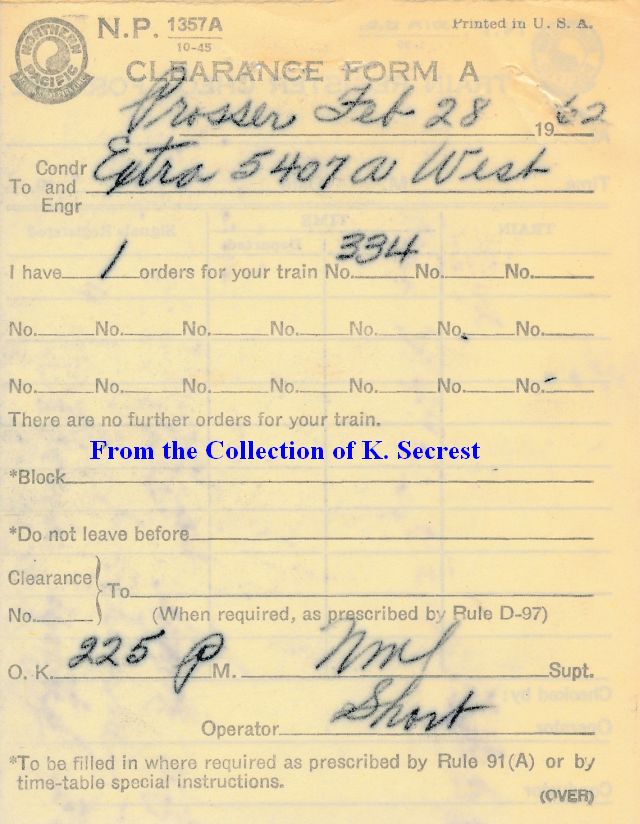 NORTHERN PACIFIC
N.P. 1357A
10-45
Printed in U. S. A.
CLEARANCE FORM A
Prosser Feb 28 1962
Condr
To and Extra 5407A West
Engr
I have 1 orders for your train No. 334 No. No.
No. No. No. No. No. No. No.
No. No. No. No. No. No. No.
There are no further orders for your train.
From the Collection of K. Secrest
*Block
*Do not leave before
Clearance To
No. (When required, as prescribed by Rule D-97)
O. K. 225 P M. Supt.
Operator Short
*To be filled in where required as prescribed by Rule 91(A) or by
time-table special instructions.
(OVER)